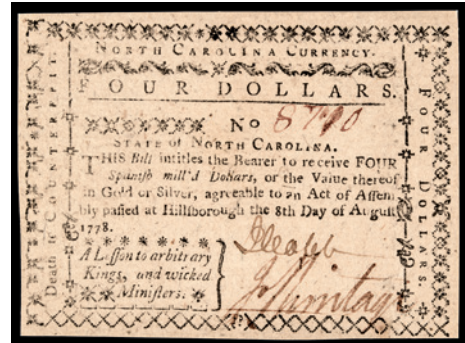 NORTH CAROLINA CURRENCY.
FOUR DOLLARS.
No 8790
STATE of NORTH CAROLINA.
THIS Bill intitles the Bearer to receive FOUR
Spanish mill'd Dollars, or the Value thereof
in Gold or Silver, agreeable to an Act of Assem
bly passed at Hillsborough the 8th Day of August
1778.
A Lesson to arbitrary
Kings, and wicked
Ministers.
Death to Counterfeit.
FOUR DOLLARS.